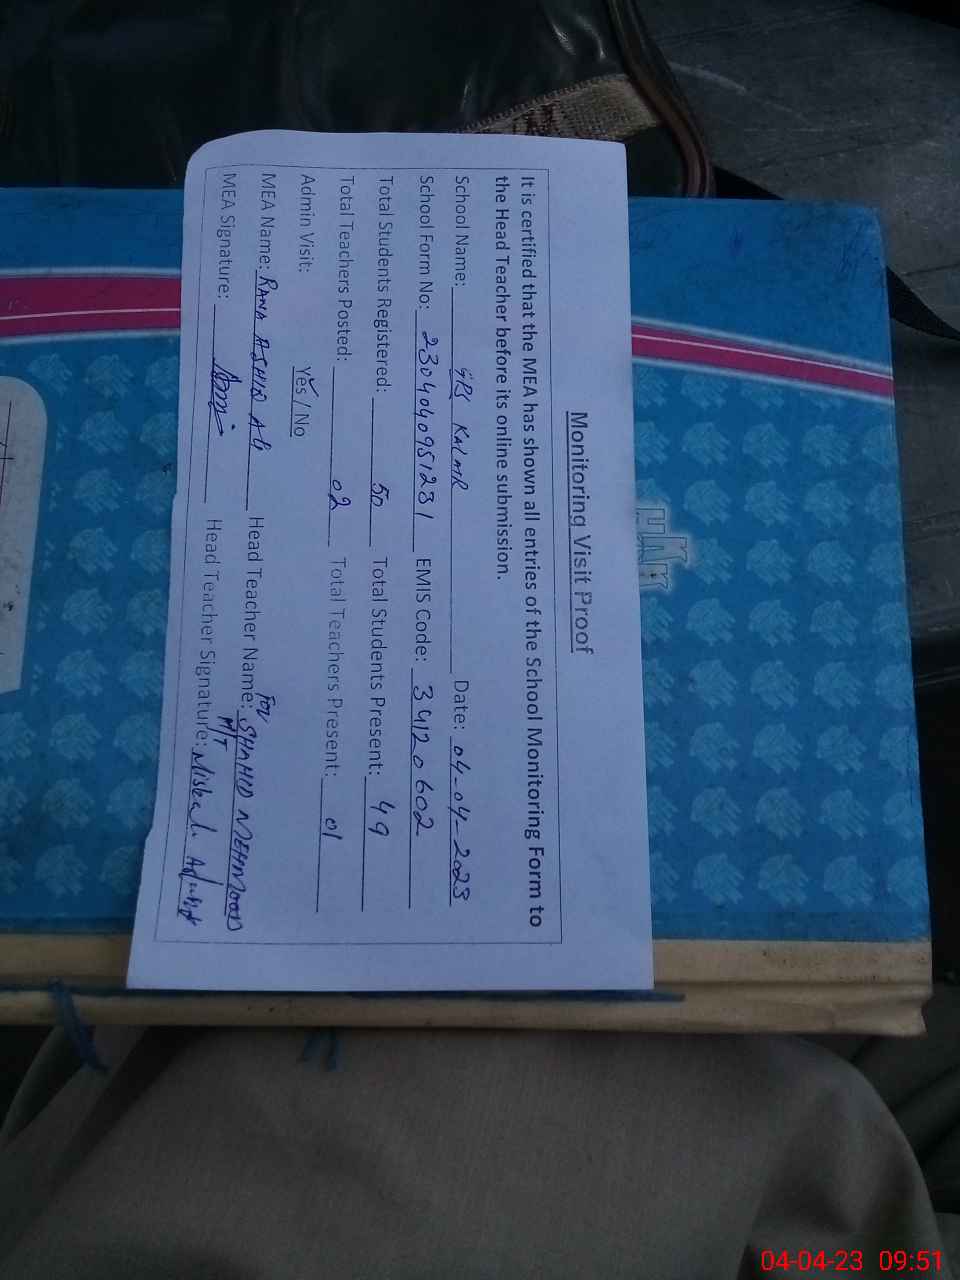 Monitoring Visit Proof
It is certified that the MEA has shown all entries of the School Monitoring Form to
the Head Teacher before its online submission.
School Name: GPS KALAR Date: 04-04-2023
School Form No: 23040409S1231 EMIS Code: 34120602
Total Students Registered: 50 Total Students Present: 49
Total Teachers Posted: 02 Total Teachers Present: 01
Admin Visit: Yes / No
MEA Name: RANA ASHIQ ALI Head Teacher Name: For SHAHID MEHMOOD
MEA Signature: Head Teacher Signature: M/T Misbah
04-04-23 09:51